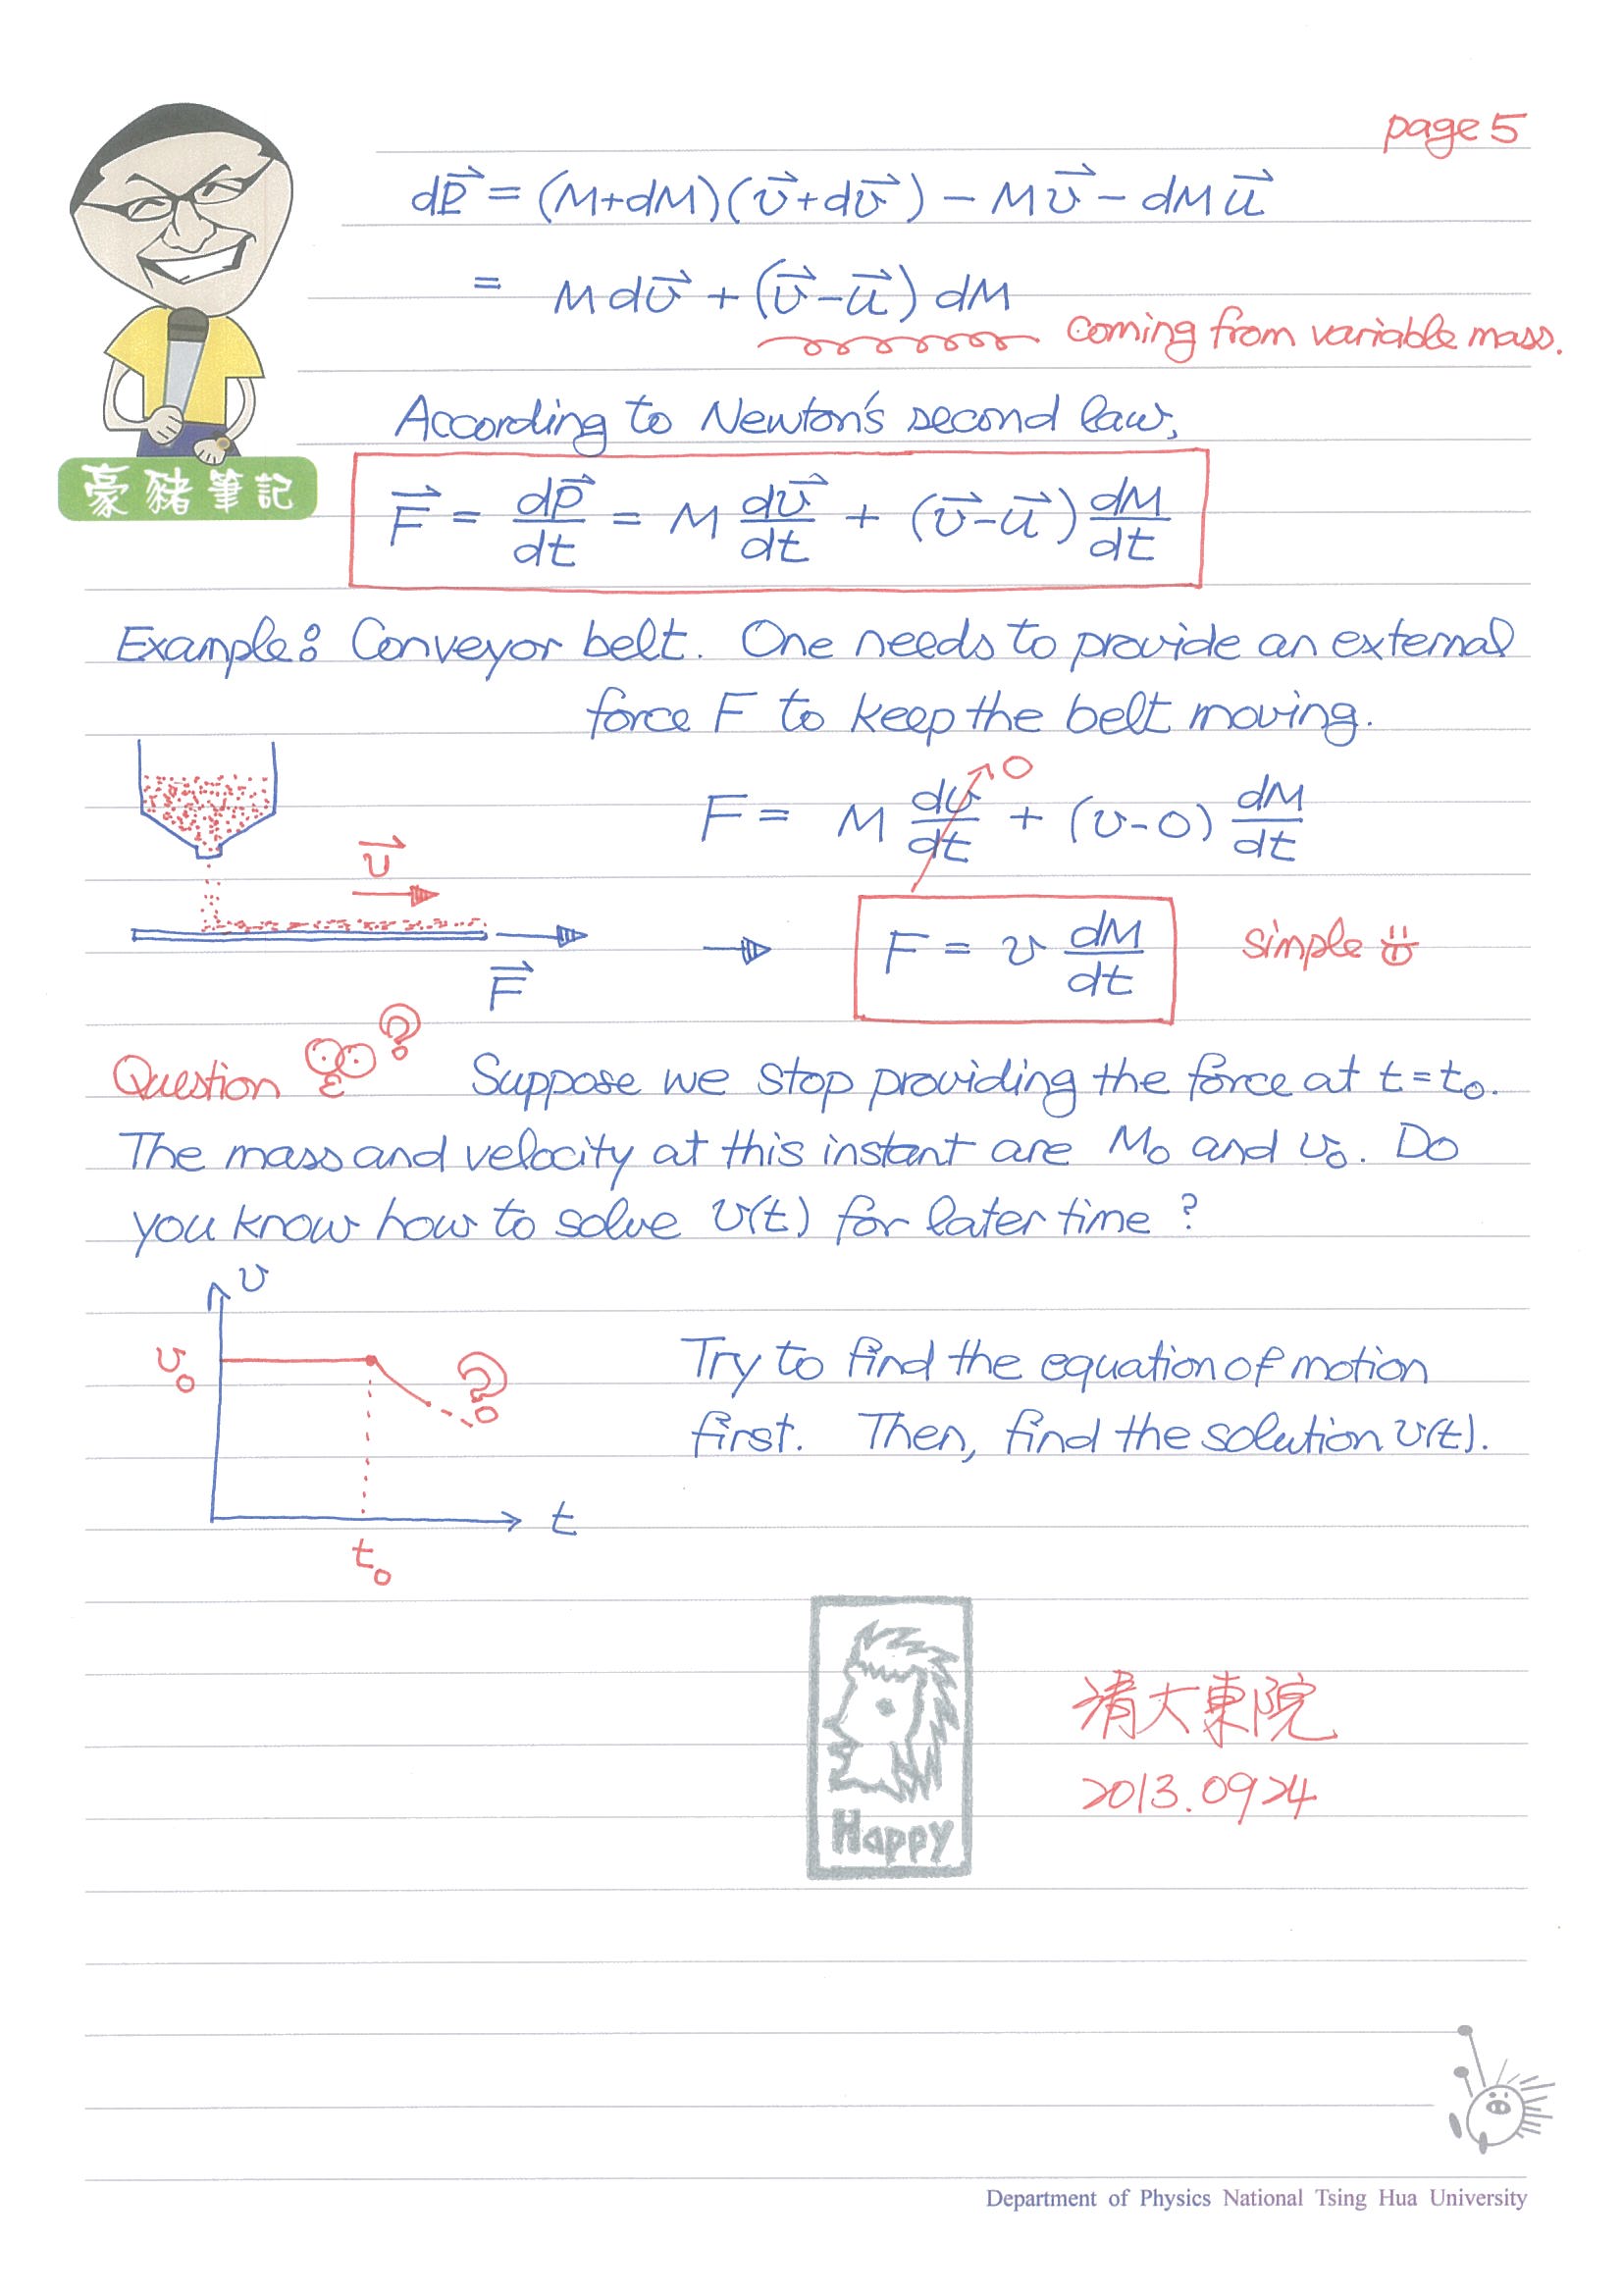 page 5
dP⃗ = (M+dM)(v⃗+dv⃗) - Mv⃗ - dM u⃗
= M dv⃗ + (v⃗-u⃗) dM
coming from variable mass.
According to Newton's second law,
豪豬筆記
F⃗ = dp⃗/dt = M dv⃗/dt + (v⃗-u⃗) dM/dt
Example: Conveyor belt. One needs to provide an external
force F to keep the belt moving.
F = M dv/dt + (v-0) dM/dt
0
v⃗
F⃗
F = v dM/dt
simple
Question ? Suppose we stop providing the force at t=t₀.
The mass and velocity at this instant are M₀ and v₀. Do
you know how to solve v(t) for later time ?
v
v₀
?
t
t₀
Try to find the equation of motion
first. Then, find the solution v(t).
Happy
清大東院
2013.0924
Department of Physics National Tsing Hua University